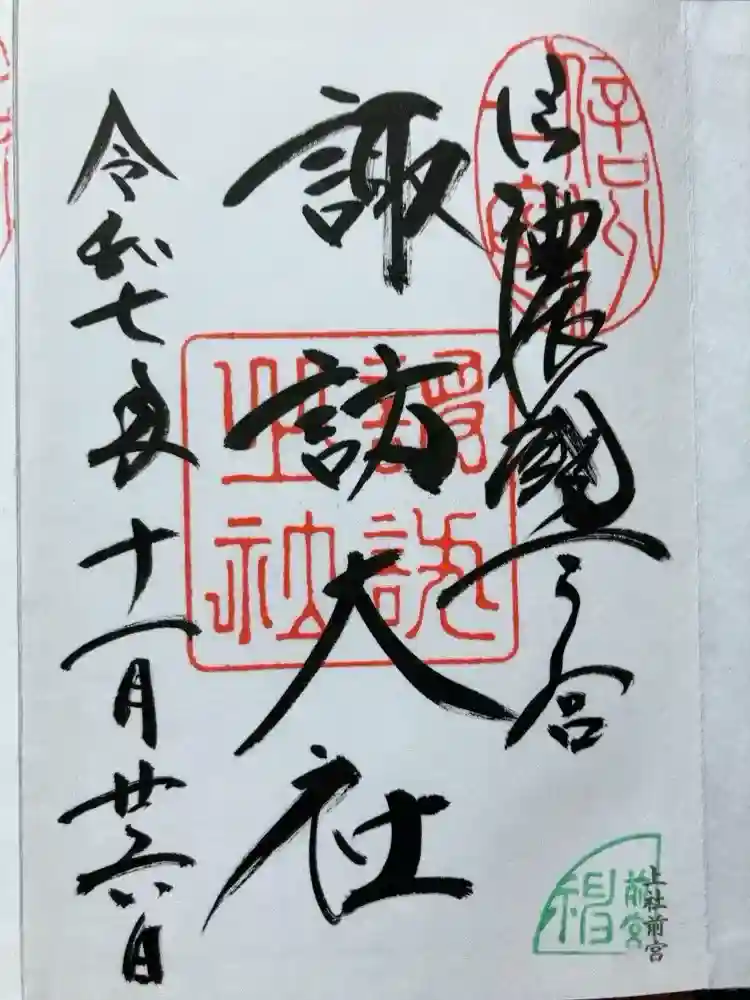 信濃國一之宮
諏訪大社
令和七年十一月廿六日
上社前宮
前宮